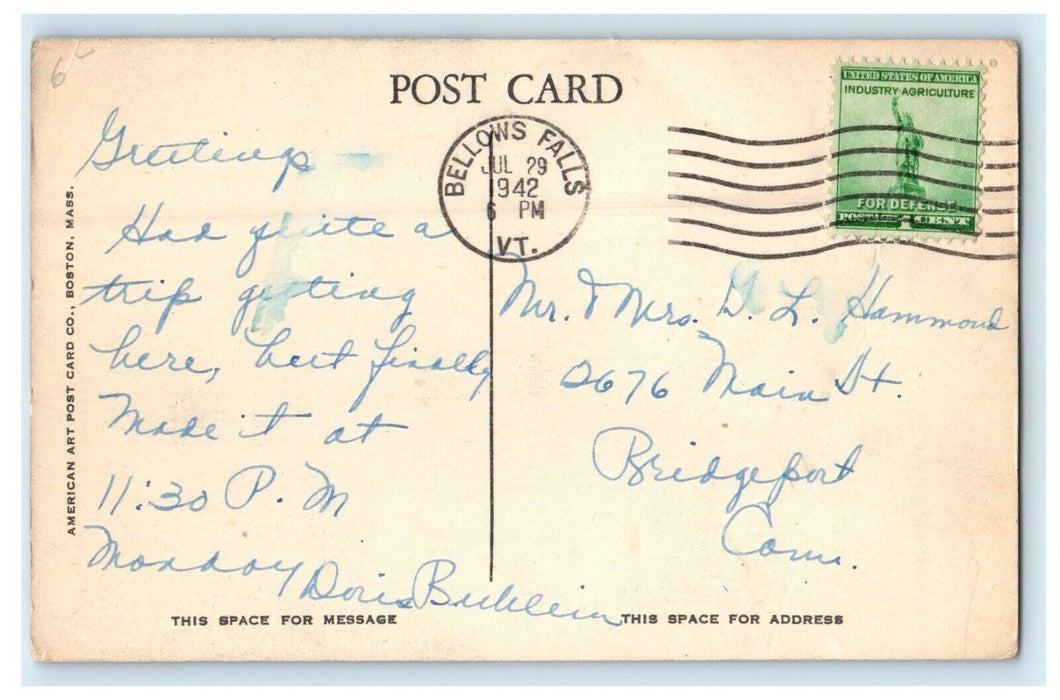 6
POST CARD
BELLOWS FALLS
JUL 29
1942
6 PM
VT.
UNITED STATES OF AMERICA
INDUSTRY·AGRICULTURE
FOR DEFENSE
POSTAGE 1 CENT
AMERICAN ART POST CARD CO., BOSTON, MASS.
Greetings —
Had quite a
trip getting
here, but finally
Made it at
11:30 P. M
Monday
Doris
Mr. & Mrs. D. L. Hammond
2676 Main St.
Bridgeport
Conn.
THIS SPACE FOR MESSAGE
THIS SPACE FOR ADDRESS